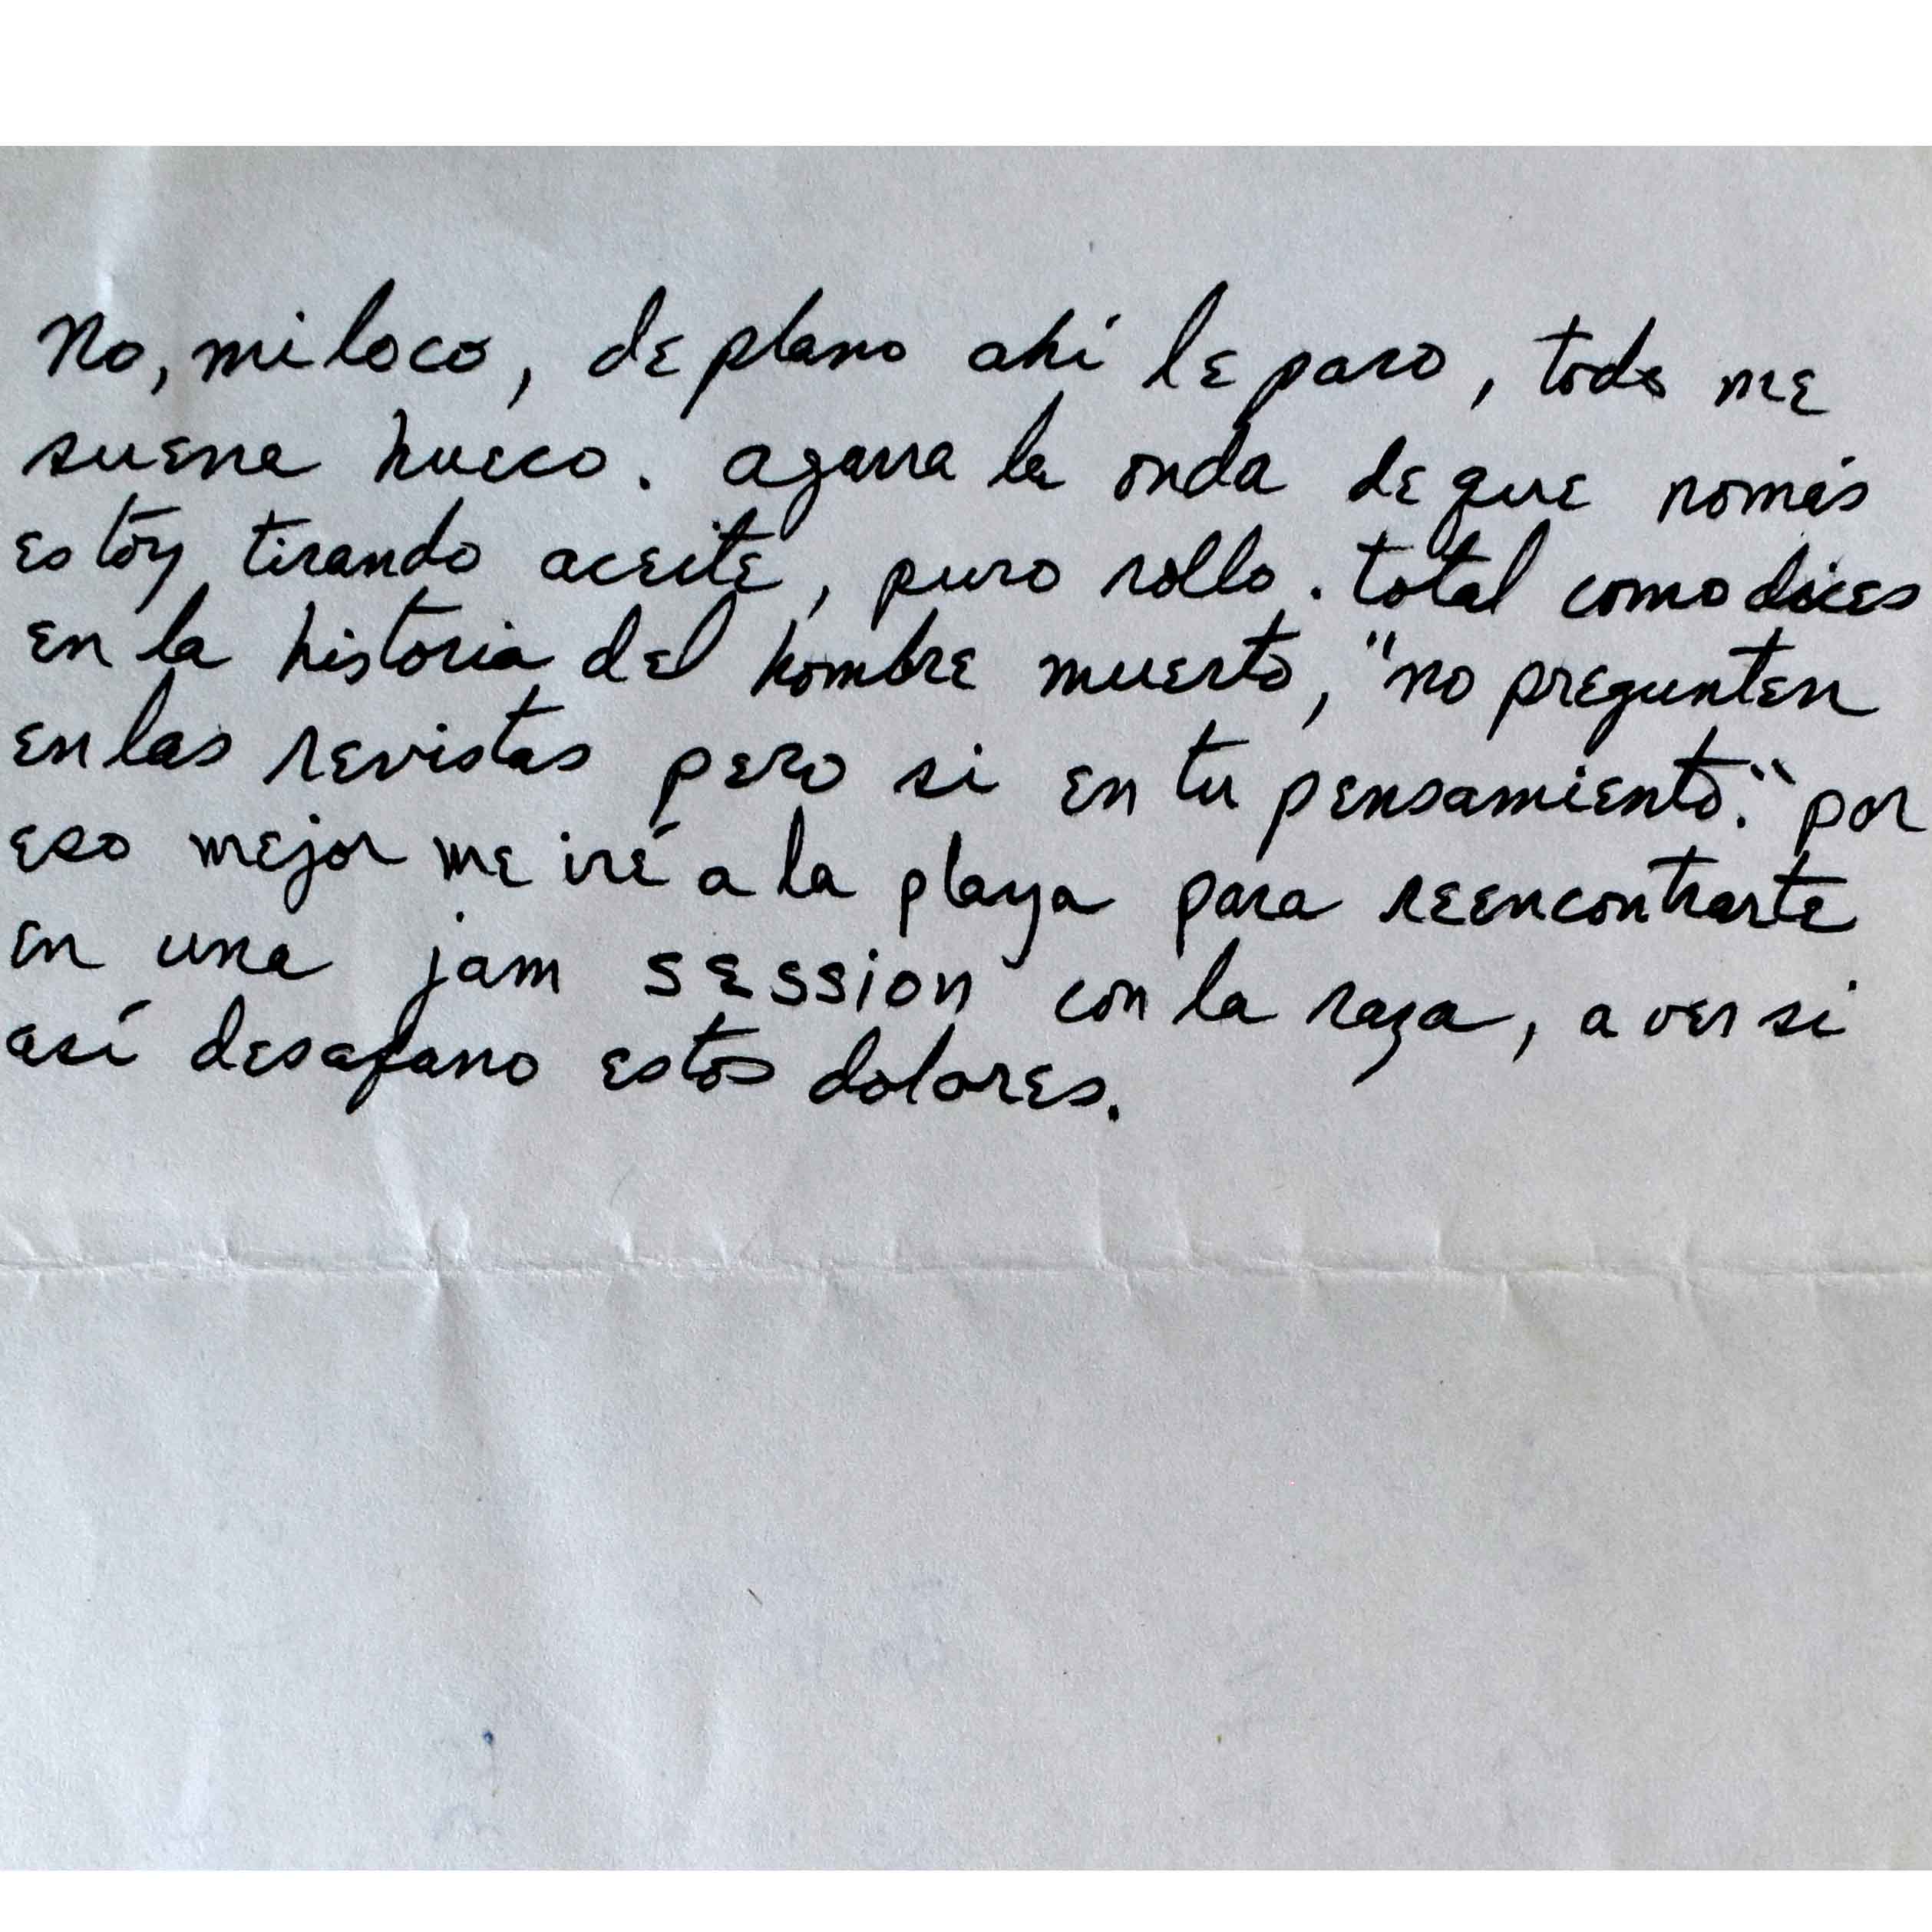 No, mi loco, de plano ahí le paro, todo me
suena hueco. agarra la onda de que nomás
estoy tirando aceite, puro rollo. total como dices
en la historia del hombre muerto, "no pregunten
en las revistas pero si en tu pensamiento." por
eso mejor me iré a la playa para reencontrarte
en una jam session con la raza, a ver si
así desafano estos dolores.